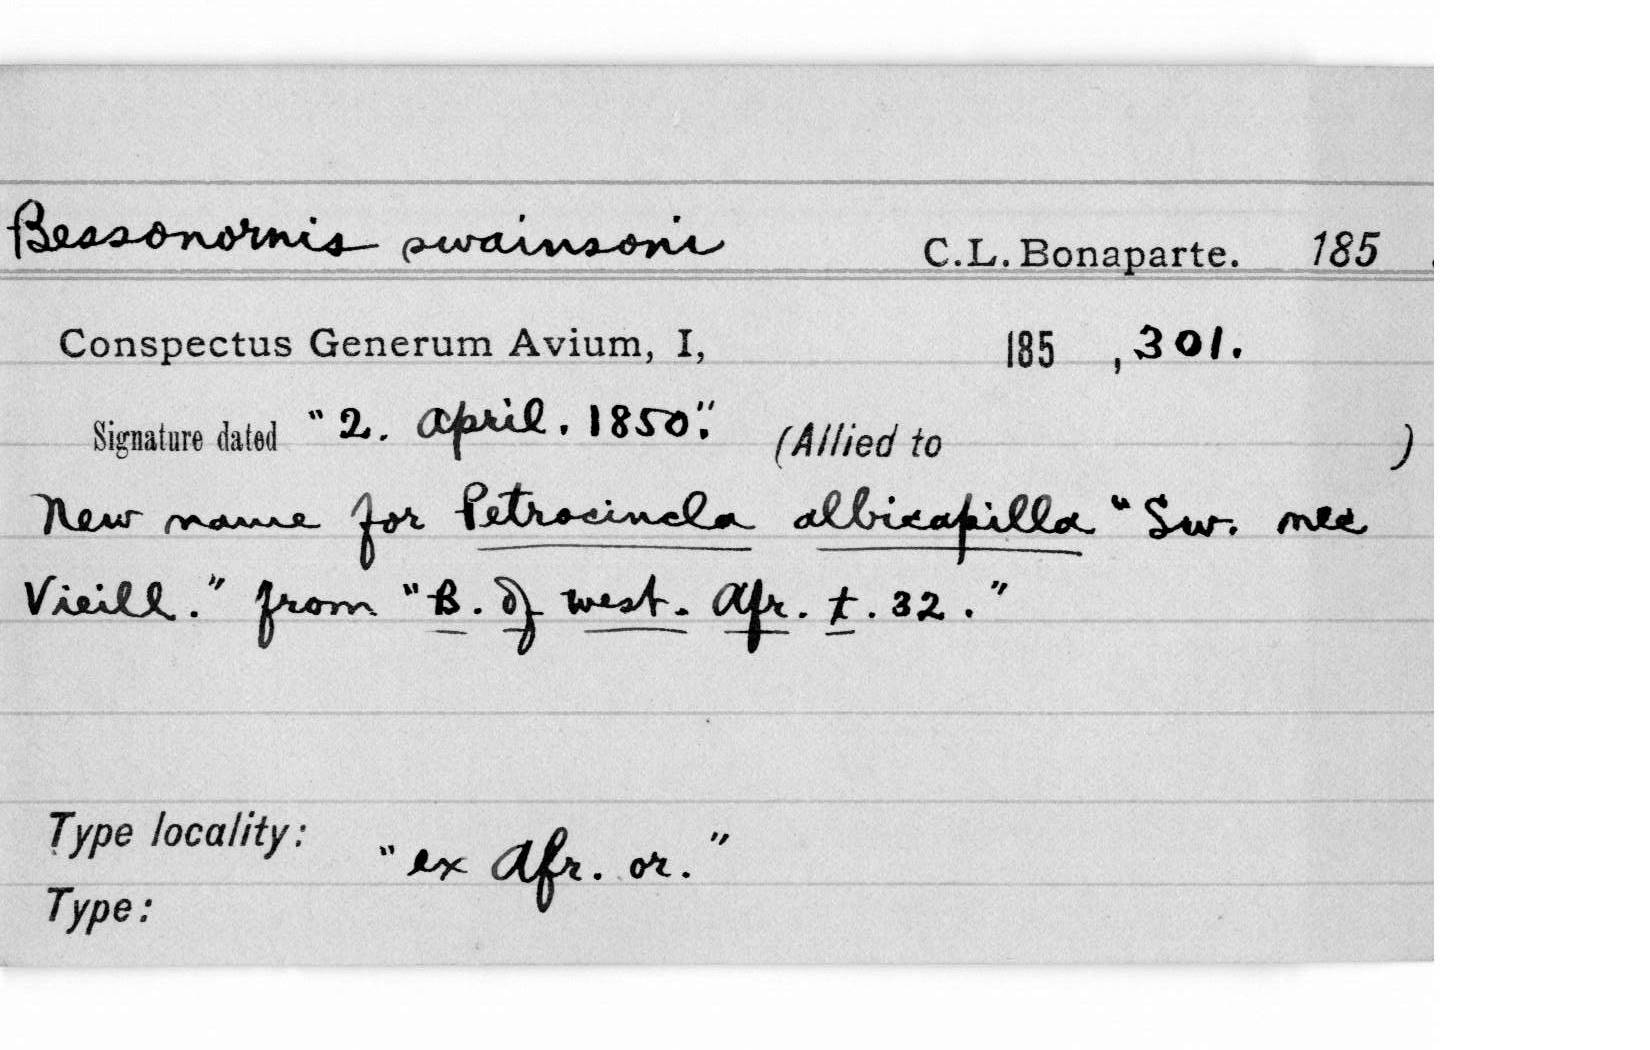 Bessonornis swainsoni C.L. Bonaparte. 185 .
Conspectus Generum Avium, I, 185 , 301.
Signature dated "2. April. 1850". (Allied to )
New name for Petrocincla albicapilla "Sw. nec
Vieill." from "B. of west. Afr. t. 32."
Type locality: "ex Afr. or."
Type: